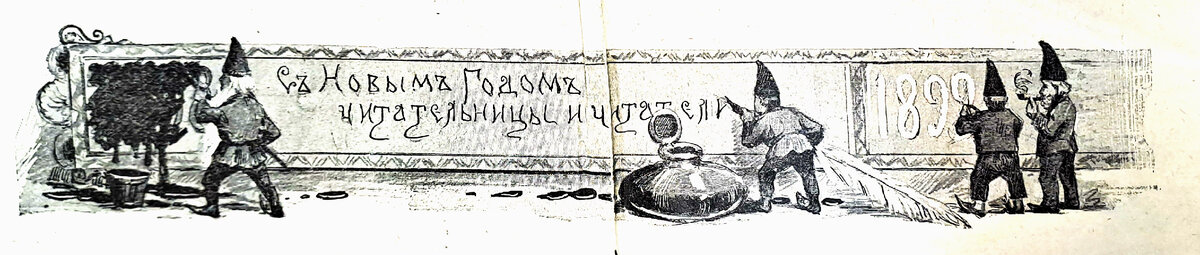 Съ Новымъ Годомъ
читательницы и читатели
1899